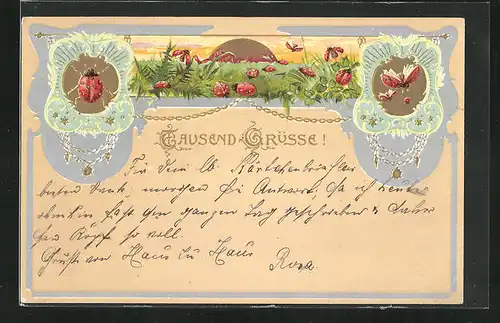 TAUSEND GRÜSSE!
Für Dein lb. Kärtchen
besten Dank, morgen die Antwort, da ich heute
fast den ganzen Tag geschrieben &
den Kopf so voll.
Grüße von Haus zu Haus
Rosa